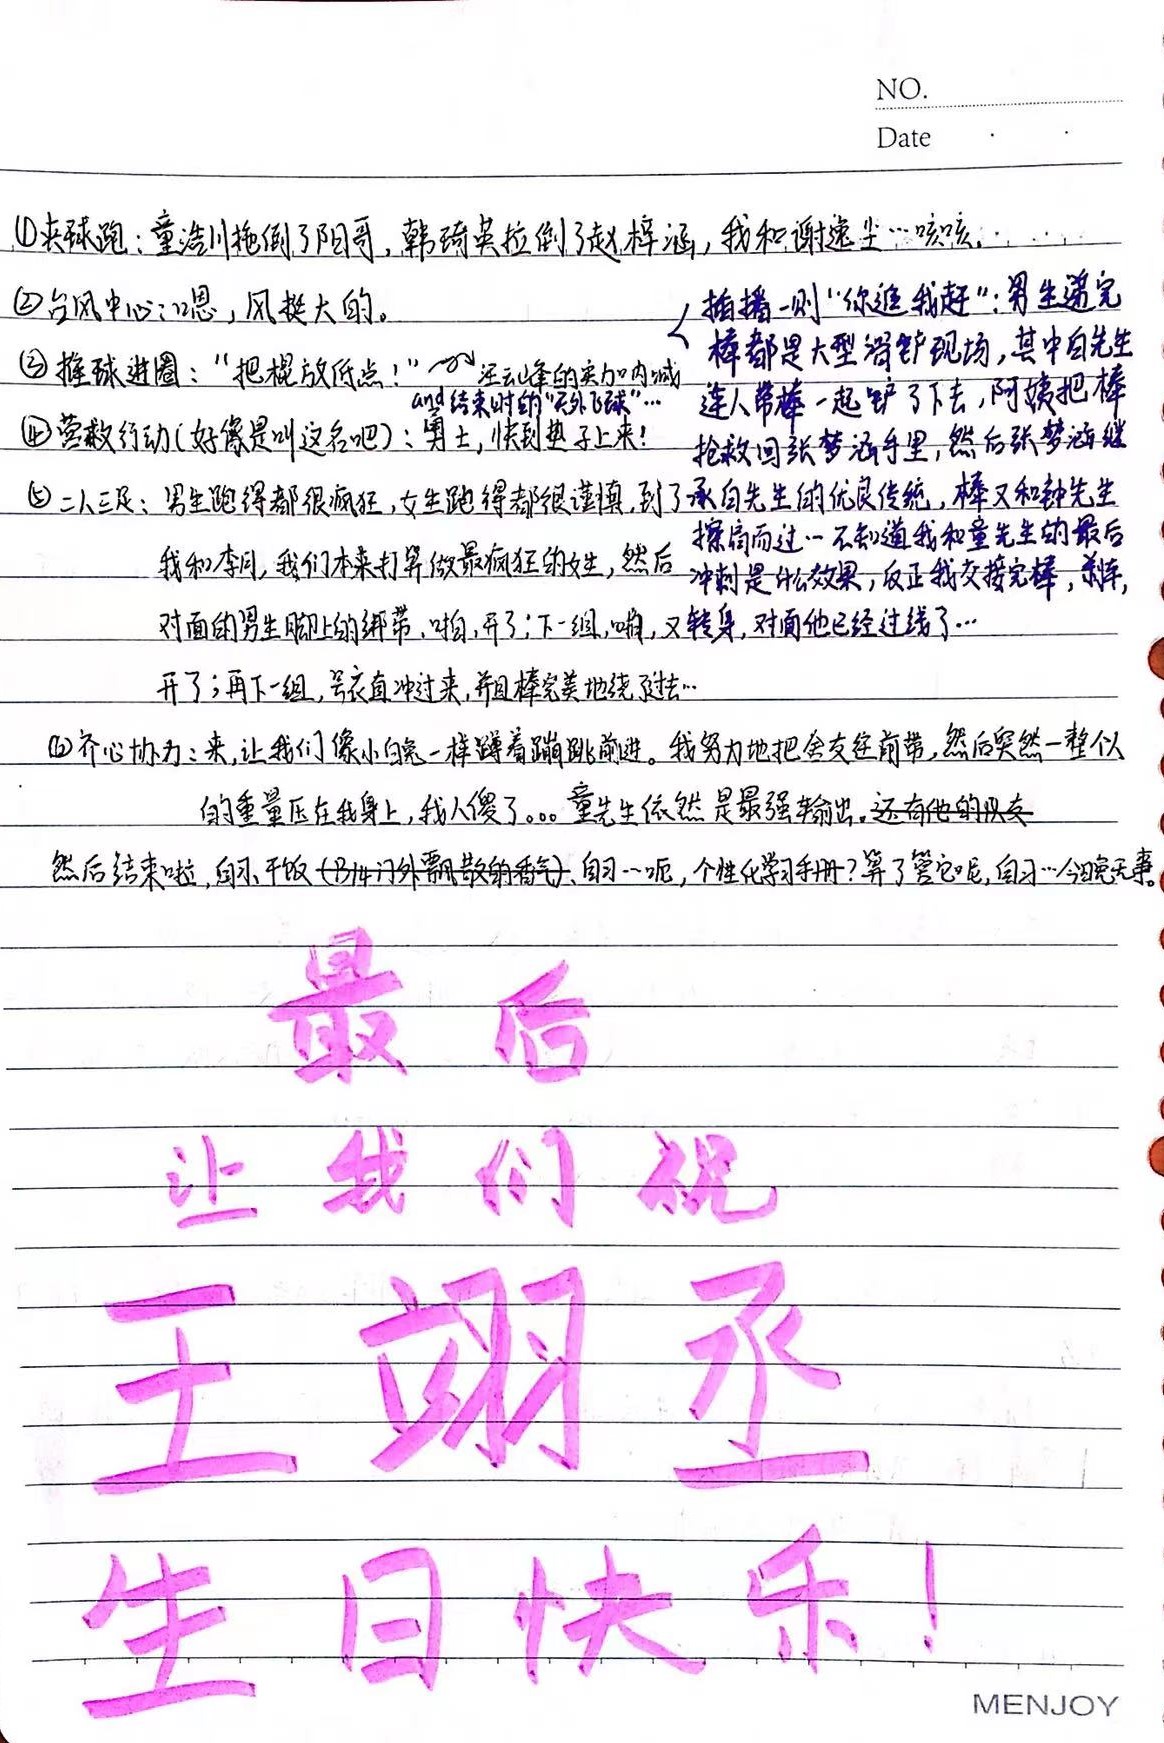 NO.
Date
①夹球跑：童浩川拖倒了阳哥，韩琦英拉倒了赵梓涵，我和谢逸尘…咳咳。
②台风中心：嗯，风挺大的。
③推球进圈："把棍放低点！"～汪云峰的实力呐喊
and结束时的"天外飞球"…
④营救行动（好像是叫这名吧）：勇士，快到垫子上来！
⑤二人三足：男生跑得都很疯狂，女生跑得都很谨慎，到了
我和李月，我们本来打算做最疯狂的女生，然后
对面的男生脚上的绑带，啪，开了；下一组，啪，又
开了；再下一组，号衣直冲过来，并且棒完美地绕了过去…
<插播一则"你追我赶"：男生递完
棒都是大型滑铲现场，其中白先生
连人带棒一起铲了下去，阿姨把棒
抢救回张梦涵手里，然后张梦涵继
承白先生的优良传统，棒又和钟先生
擦肩而过…不知道我和童先生的最后
冲刺是什么效果，反正我交接完棒，刹车，
转身，对面他已经过线了…
⑥齐心协力：来，让我们像小白兔一样蹲着蹦跳前进。我努力地把会友往前带，然后突然一整个人
的重量压在我身上，我人傻了。。。童先生依然是最强输出。还有他的队友
然后结束啦，自习、干饭（B14门外飘散的香气）、自习…呃，个性化学习手册？算了管它呢，自习…今日完无事。
最后
让我们祝
王翊丞
生日快乐！
MENJOY